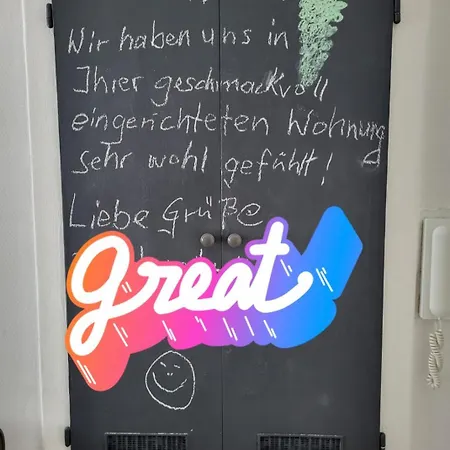 Wir haben uns in
Ihrer geschmackvoll
eingerichteten Wohnung
sehr wohl gefühlt!
Liebe Grüße
great